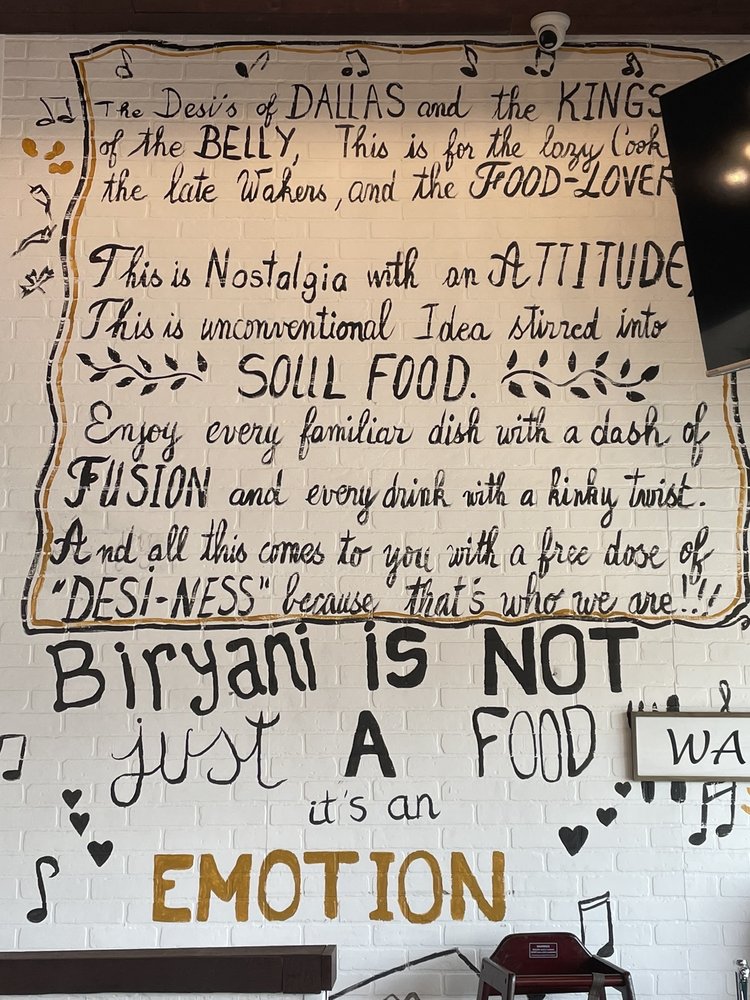 The Desi's of DALLAS and the KINGS
of the BELLY, This is for the lazy Cook
the late Wakers, and the FOOD-LOVER
This is Nostalgia with an ATTITUDE,
This is unconventional Idea stirred into
SOUL FOOD.
Enjoy every familiar dish with a dash of
FUSION and every drink with a kinky twist.
And all this comes to you with a free dose of
"DESi-NESS" because that's who we are!!!
Biryani is NOT
just A FOOD
it's an
EMOTION
WA